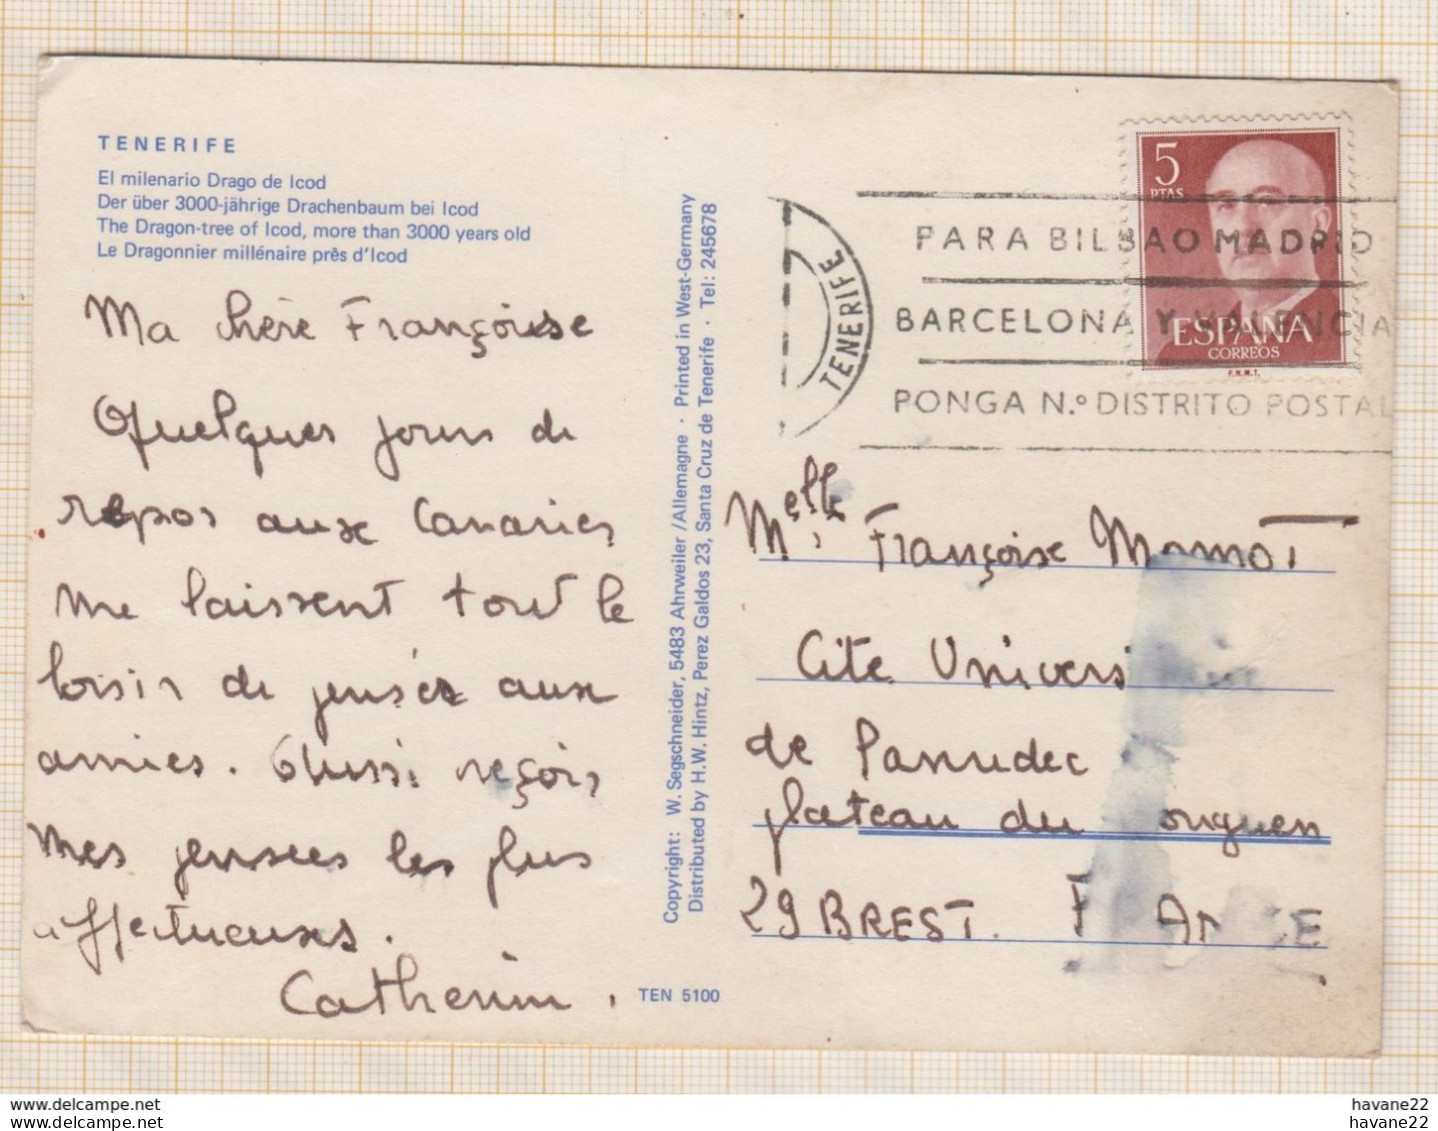 TENERIFE
El milenario Drago de Icod
Der über 3000-jährige Drachenbaum bei Icod
The Dragon-tree of Icod, more than 3000 years old
Le Dragonnier millénaire près d'Icod
Ma chère Françoise
Quelques jours de
repos aux Canaries
me laissent tout le
loisir de penser aux
amies. Aussi reçois
mes pensées les plus
affectueuses.
Catherine.
Copyright: W. Segschneider, 5483 Ahrweiler/Allemagne · Printed in West-Germany
Distributed by H.W. Hintz, Perez Galdos 23, Santa Cruz de Tenerife · Tel: 245678
TEN 5100
TENERIFE
PARA BILBAO MADRID
BARCELONA Y VALENCIA
PONGA N.º DISTRITO POSTAL
5
PTAS
ESPAÑA
CORREOS
F.N.M.T.
Melle Françoise
Cite Univers
de Lanrudec
plateau du
29 BREST. FRANCE
havane22
havane22
havane22
havane22